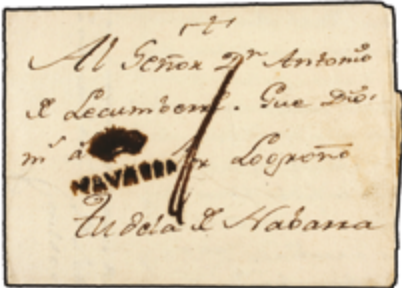 Al Señor Dn Antonio
de Lecumberri. Gue Dios.
ms as Por Logroño
NAVARRA
Tudela de Nabarra